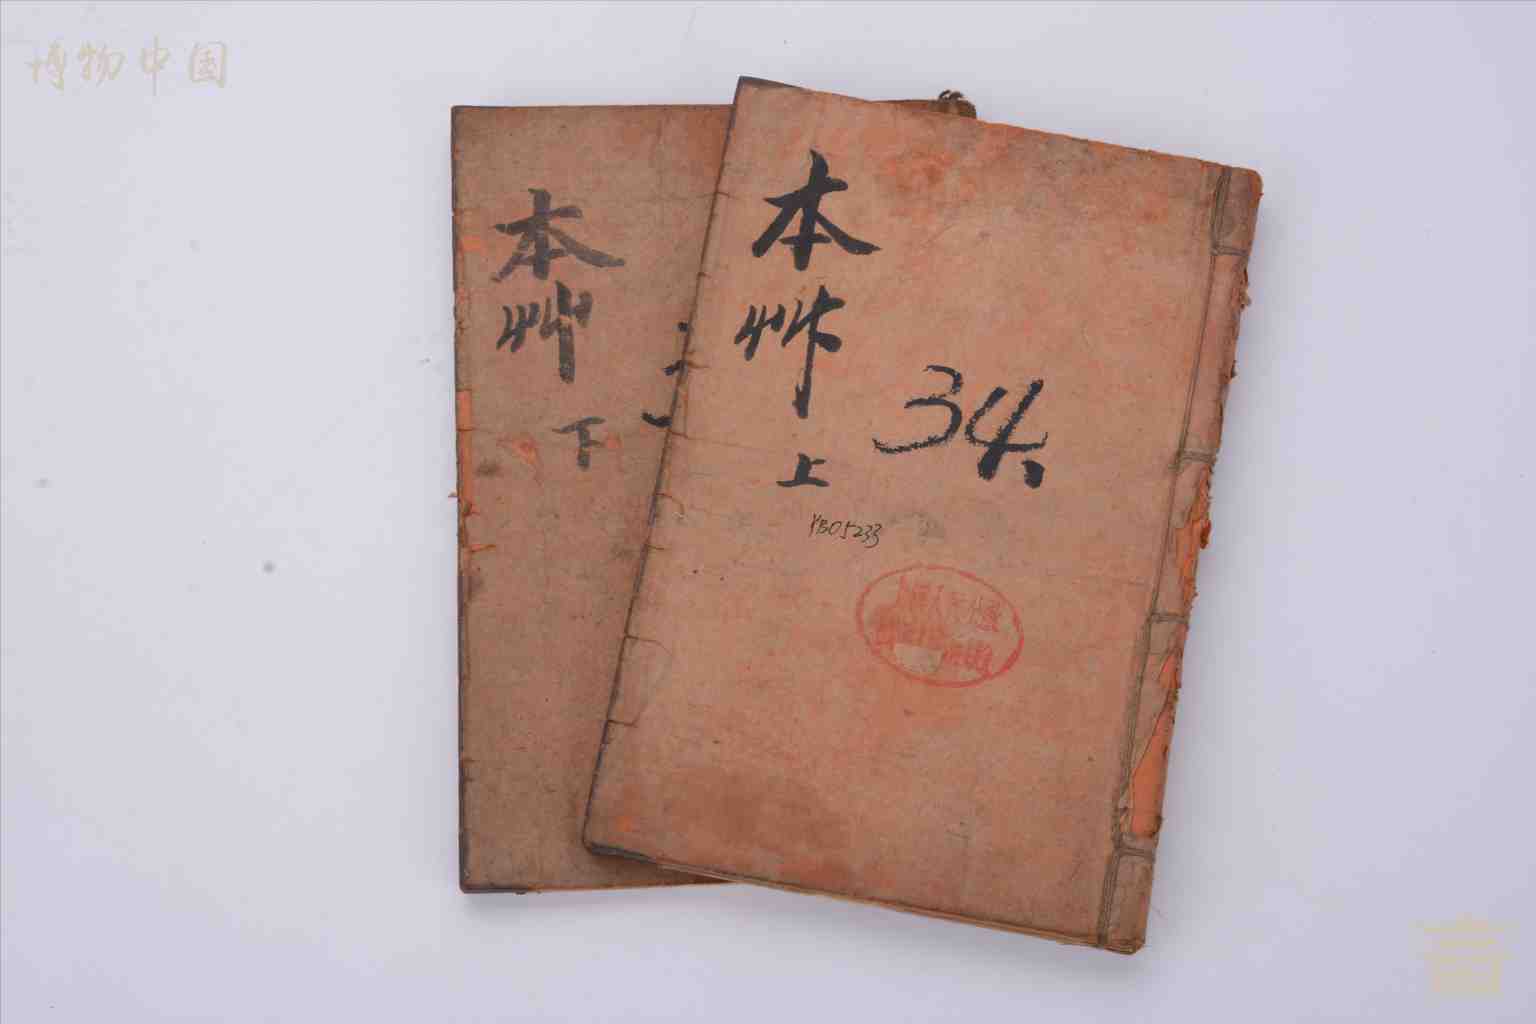 博物中国
本艸
下
本艸
上
34
YB05233